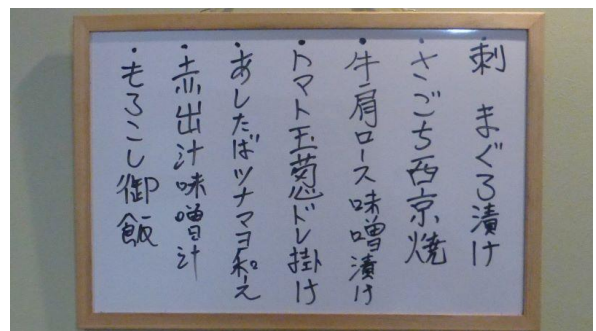 ・刺 まぐろ漬け
・さごち西京焼
・牛肩ロース味噌漬け
・トマト玉葱ドレ掛け
・あしたばツナマヨ和え
・赤出汁味噌汁
・もろこし御飯